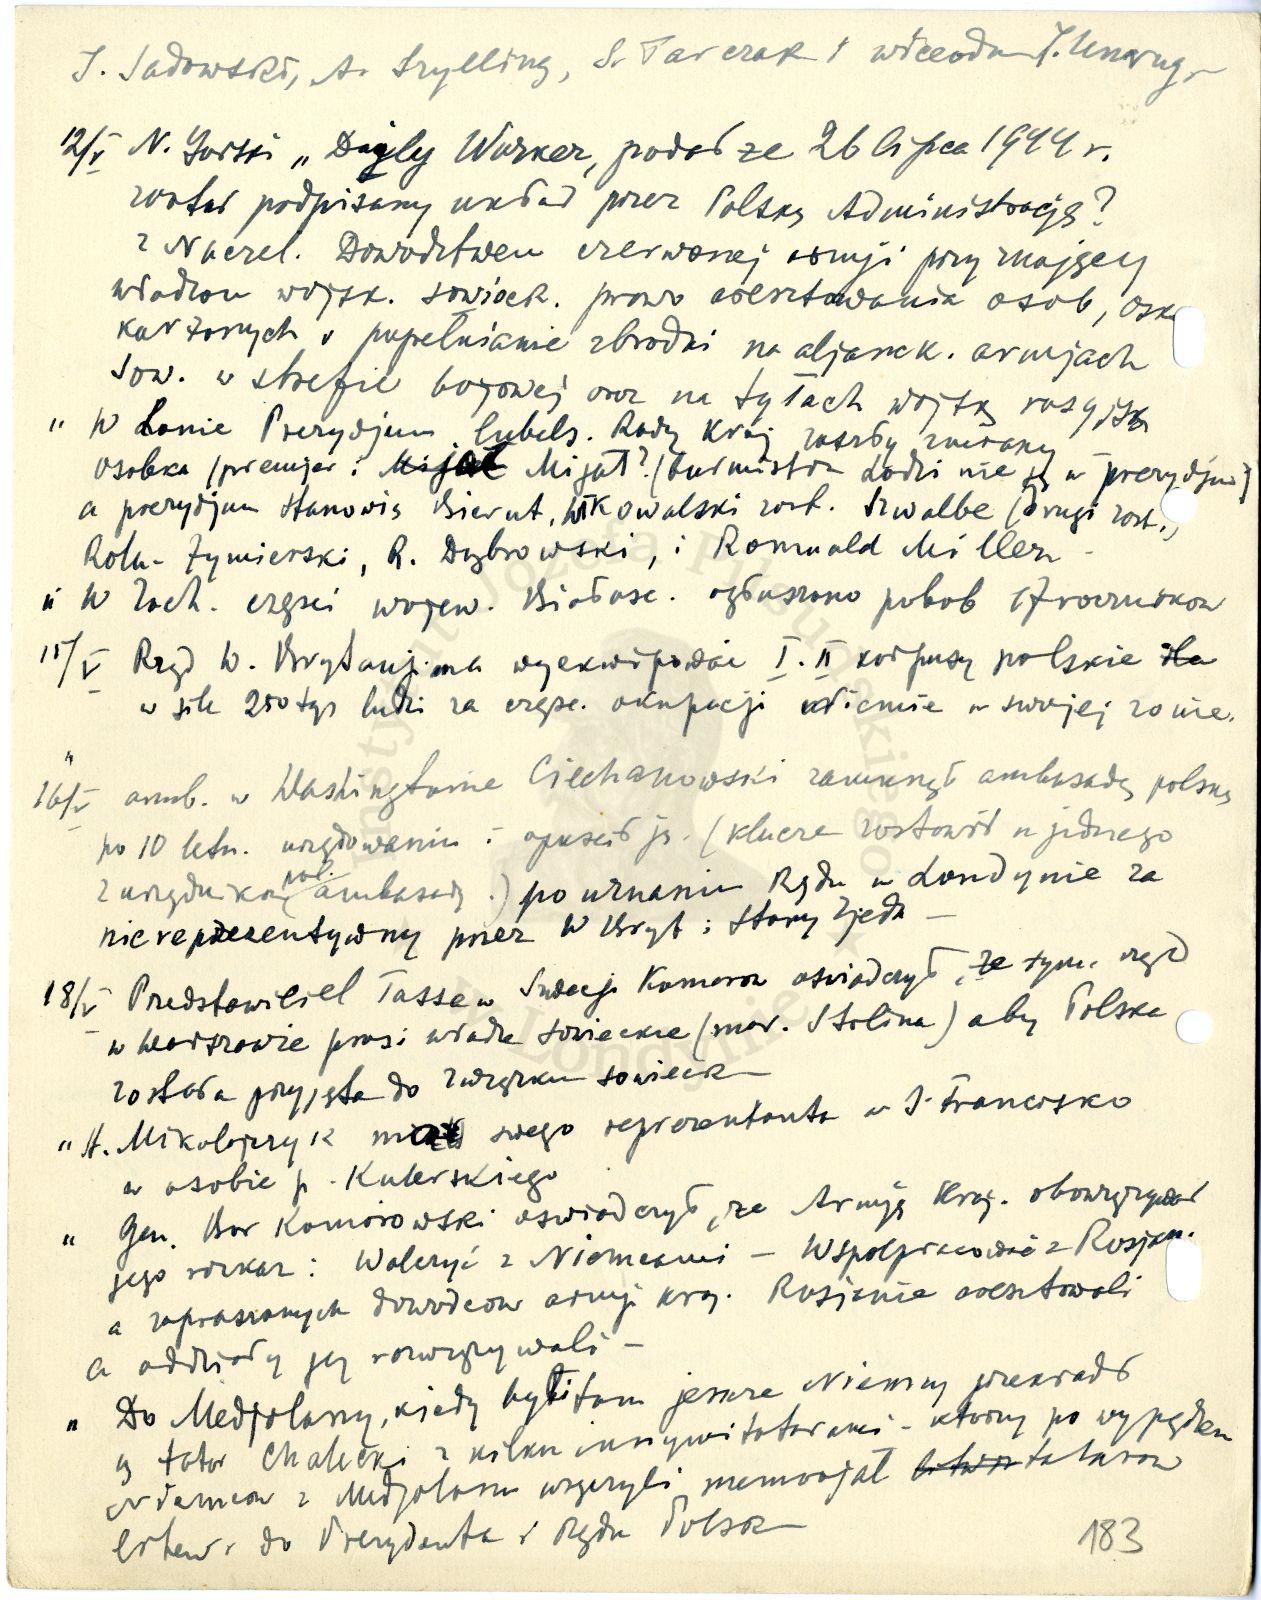 J. Sadowski, A. Szylling, S. Tarczak i wiceadm J. Unrug.
12/V N. Gorski "Dayly Worker, podał ze 26 lipca 1944 r.
został podpisany układ przez Polską Administrację?
z Naczel. Dowodztwem czerwonej armji przyznający
władzom wojsk. sowieck. prawo aresztowania osob, oska
karżonych o popełnianie zbrodni na aljanck. armjach
Sow. w strefie bojowej oraz na tyłach wojsk rosyjsk
" W łonie Prezydjum lubels. Rady Kraj zaszły zmiany
Osobka (premjer i Mijał? (burmistrz Łodzi nie są w prezydjum)
a prezydjum stanowią Bierut, W Kowalski zast. Szwalbe (drugi zast.,
Rola-Żymierski, R. Dąbrowski, i Romuald Miller -
" W Zach. części wojew. Białost. ogłoszono pobób 17 roczników
15/V Rząd W. Brytanji ma wyekwipować I. II korpusy polskie
w sile 250 tys ludzi za częśc. okupacji Niemie w swojej zonie.
"
16/V amb. w Washingtonie Ciechanowski zamknął ambasadę polską
po 10 letn. urzędowaniu i opuścił ją. (klucze zostawił u jednego
z urzędnika pol. ambasady.) po uznaniu Rządu w Londynie za
niereprezentywny przez W Bryt i Stany Zjedn —
18/V Przedstawiciel Tassa w Szwecji Komorow oświadczył, że tym. rząd
w Warszawie prosi władze sowieckie (mar. Stalina) aby Polska
została przyjęta do związku sowieck
" St. Mikołajczyk swego reprezentanta w S. Francisko
w osobie p. Kulerskiego
" Gen. Bor Komorowski oswiadczył, że Armję Kraj. obowązywał
jego rozkaz: Walczyć z Niemcami — Wspołpracować z Rosjan.
a zapraszanych dowodcow armji kraj. Rosjanie aresztowali
a oddziały jej rozwiązywali —
" Do Medjolanu, kiedy byli tam jeszcze Niemcy przekradł
się tatar Chalecki z kilku - ktorzy po wypędzen
Niemcow z Medjolanu wręczyli memorjał tatarow
litew. do Prezydenta i Rządu Polsk
183
Instytut Józefa Piłsudskiego w Londynie